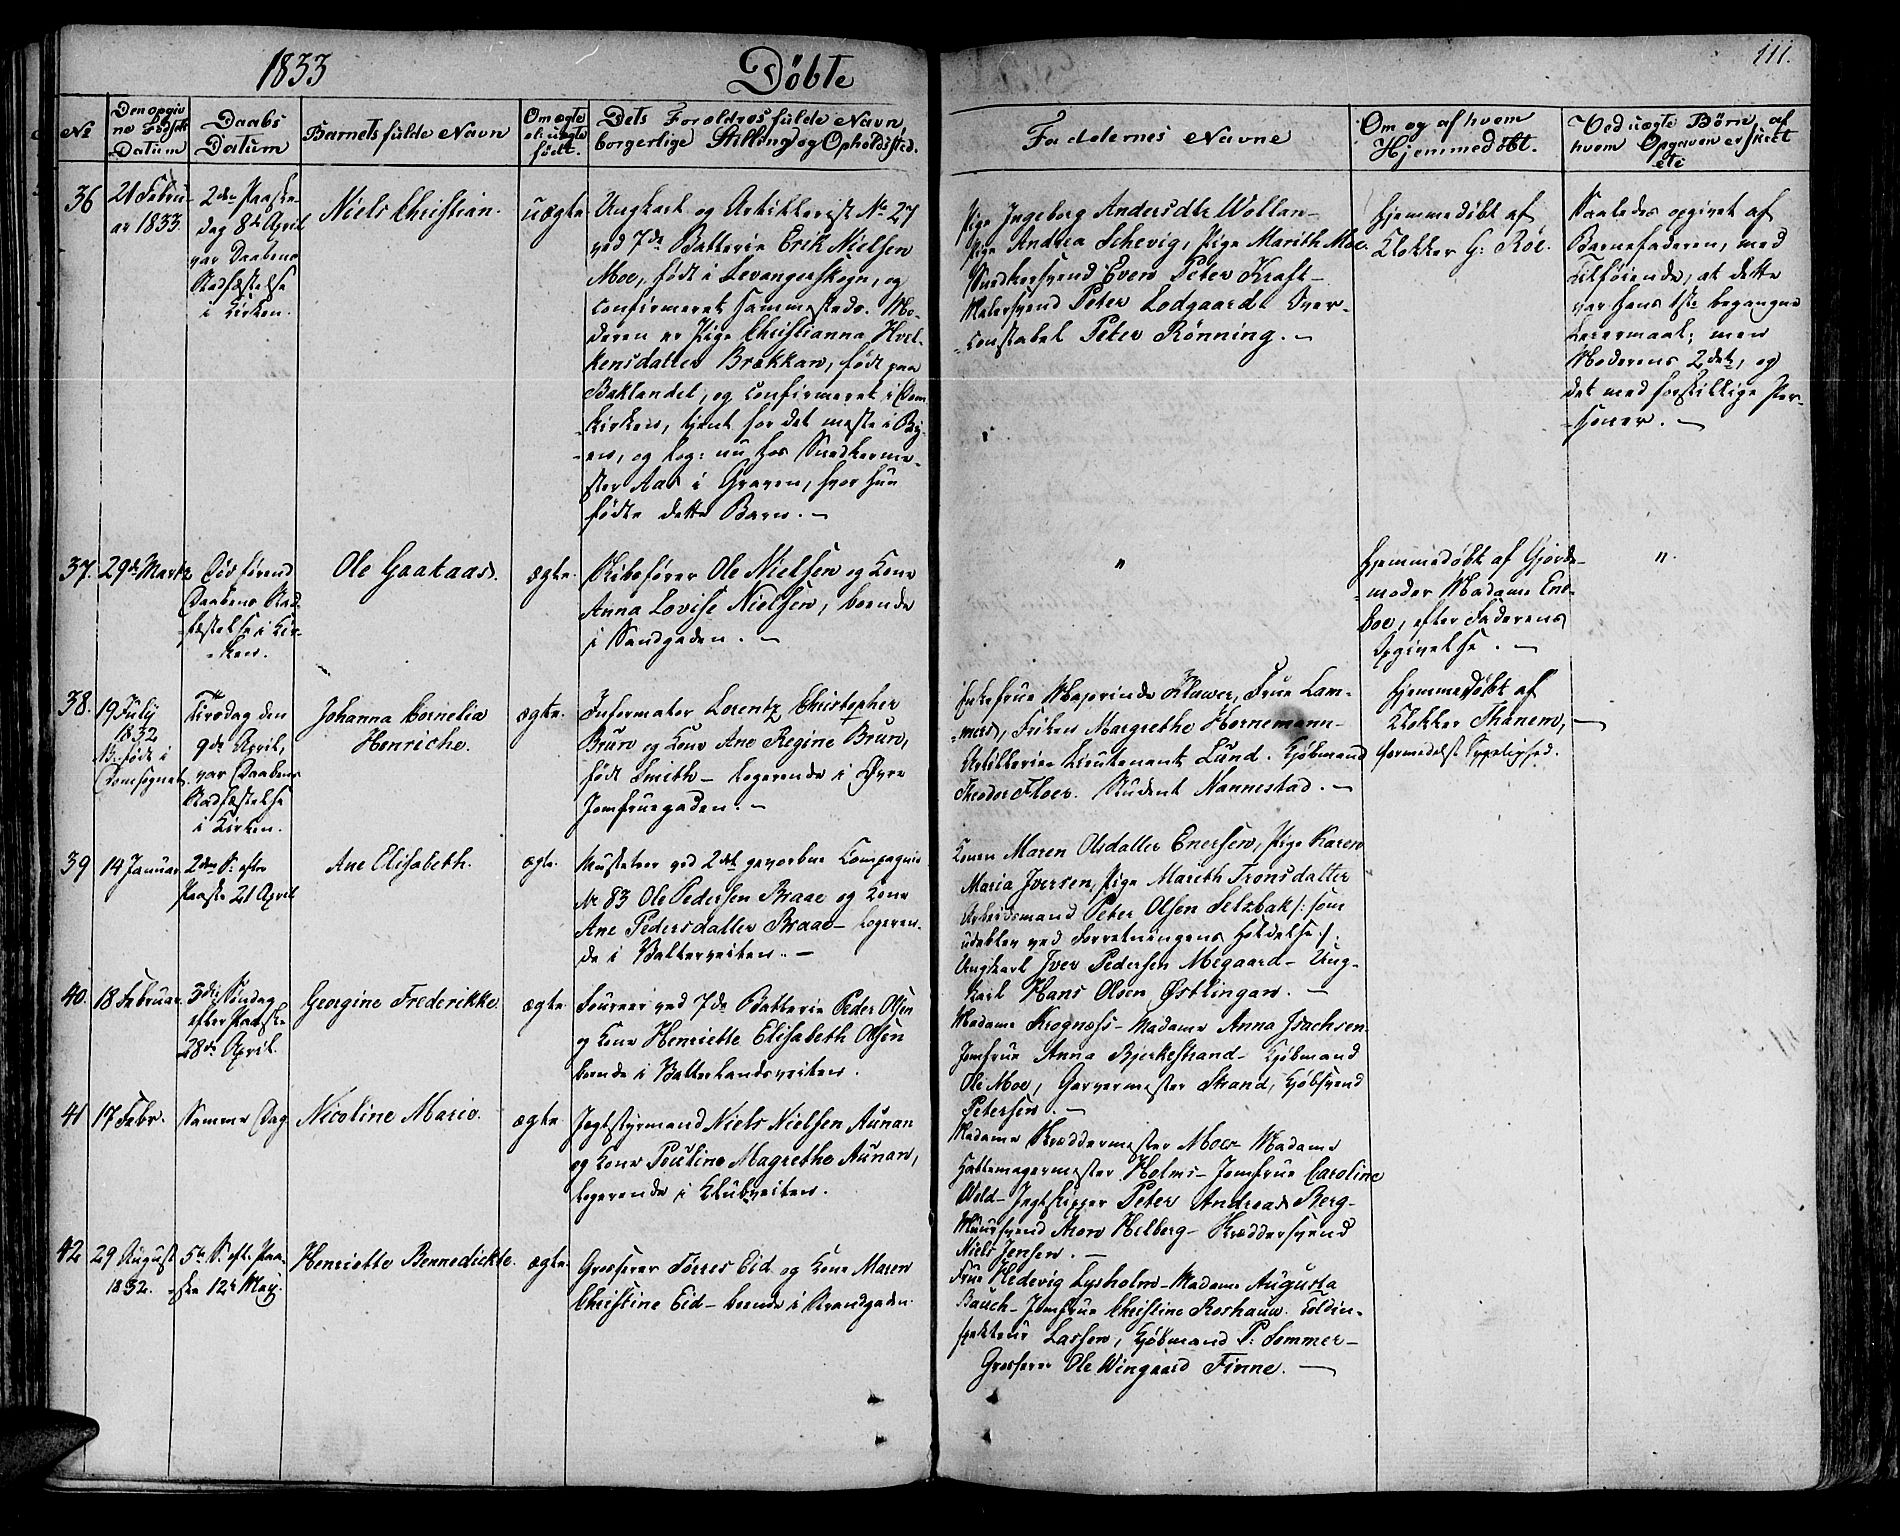 1833
Döbte
111.
No
Den opgivne Födsels Datum
Daabs Datum
Barnets fulde Navn
Om ægte el: uægte födt.
Dets Forældres fulde Navn, borgerlige Stilling og Opholdssted.
Faddernes Navne
Om og af hvem Hjemmedöbt.
Ved uægte Börn, af hvem Opgaven er skeet etc
36
21 Febru-
ar 1833.
2den Paaske-
dag 8de April
var Daabens
Stadfæstelse
i Kirken.
Niels Christian.
uægte
Ungkarl og Artillerist No 27
ved 7de Batterie Erik Nielsen
Moe, födt i Levangerskogn, og
confirmeret sammesteds. Mo-
deren er Pige Christianna Hvel-
kensdatter Brækkan, födt paa
Baklandet, og confirmeret i Dom-
kirken, tjent for det meste i By-
en, og log: nu hos Snedkerme-
ster Aas i Graven, hvor hun
födte dette Barn. —
Pige Ingeborg Andersdtr Wollan-
Pige Andrea Schevig, Pige Marith Moe.
Snedkersvend Even Peter Kraft-
Malersvend Peter Lodgaard. Over-
constabel Peter Rönning. —
hjemmedöbt af
Klokker G: Röe.
Saaledes opgivet af
Barnefaderen, med
Tilföiende, at dette
var hans 1ste begangne
Leiermaal; men
Moderens 2det, og
det med forskillige Per-
soner. —
37.
29de Marts
Dis förend
Daabens Stad-
fæstelse i Kir-
ken.
Ole Gaataas.
ægte.
Skibsförer Ole Nielsen og Kone
Anna Lovise Nielsen, boende
i Sandgaden. —
"
hjemmedöbt af Gjorde-
moder Madame Ene-
boe, efter Faderens
Opgivelse. —
"
38.
19 July
1832
B: födt i
Domsognet
Tirsdag den
9de April,
var Daabens
Stadfæstelse
i Kirken.
Johanna Cornelia
Henriche.
ægte.
Informator Lorentz Christopher
Brun og Kone Ane Regine Brun,
födt Smith- logerende i Øvre
Jomfruegaden. —
Enkefrue Majorinde Klüwer, Frue Lam-
mers, Fröken Margrethe Hornemann-
Artillerie Lieutenant Lund. Kjöbmand
Theodor Floer. Student Nannestad. —
hjemmedöbt af
Klokker Thanem,—
formedelst Sygelighed.
39
14 Januar
2den S. efter
Paaske 21 April
Ane Elisabeth.
ægte.
Musketeer ved 2det gevorbne Compagnie
No 83 Ole Pedersen Braae og Kone
Ane Pedersdatter Braae- logeren-
de i Vatterveiten. —
Konen Maren Olsdatter Enersen, Pige Karen
Maria Iversen, Pige Marith Tronsdatter
Arbeidsmand Peter Olsen Selzbak /: som
udeblev ved Forretningens Holdelse :/.
Ungkarl Iver Pedersen Megaard- Ung-
karl Hans Olsen Østlingan. —
40.
18 Februar
3die Söndag
efter Paaske
28de April.
Georgine Frederikke.
ægte
Foureer ved 7de Batterie Peder Olsen
og Kone Henriette Elisabeth Olsen
boende i Vatterlandsveiten.
Madame Krognæss- Madame Anna Isachsen.
Jomfrue Anna Bjerkestrand- Kjöbmand
Ole Moe, Garvermester Strand, Kjöbsvend
Petersen. —
41
17 Febr.
Samme Dag
Nicoline Marie.
ægte
Jegtstyrmand Niels Nielsen Aunan
og Kone Pouline Magrethe Aunan,
logerende i Klubveiten.
Madame Skræddermester Moe- Madame
Hattemagermester Holms- Jomfrue Caroline
Wold- Jegtskipper Peter Andreas Berg-
Muursvend Aron Hilberg- Skræddersvend
Niels Jensen. —
42
29 August
1832.
5te S. eft. Paa-
ske 12te May.
Henriette Bennedickte.
ægte
Grosserer Törres Eid og Kone Maren
Christine Eid- boende i Strandgaden.
Frue Hedevig Lysholm- Madame Augusta
Bauch- Jomfrue Christine Roshauw. Toldin-
specteur Lassen, Kjöbmand P: Sommer-
Grosserer Ole Wingaard Finne. —